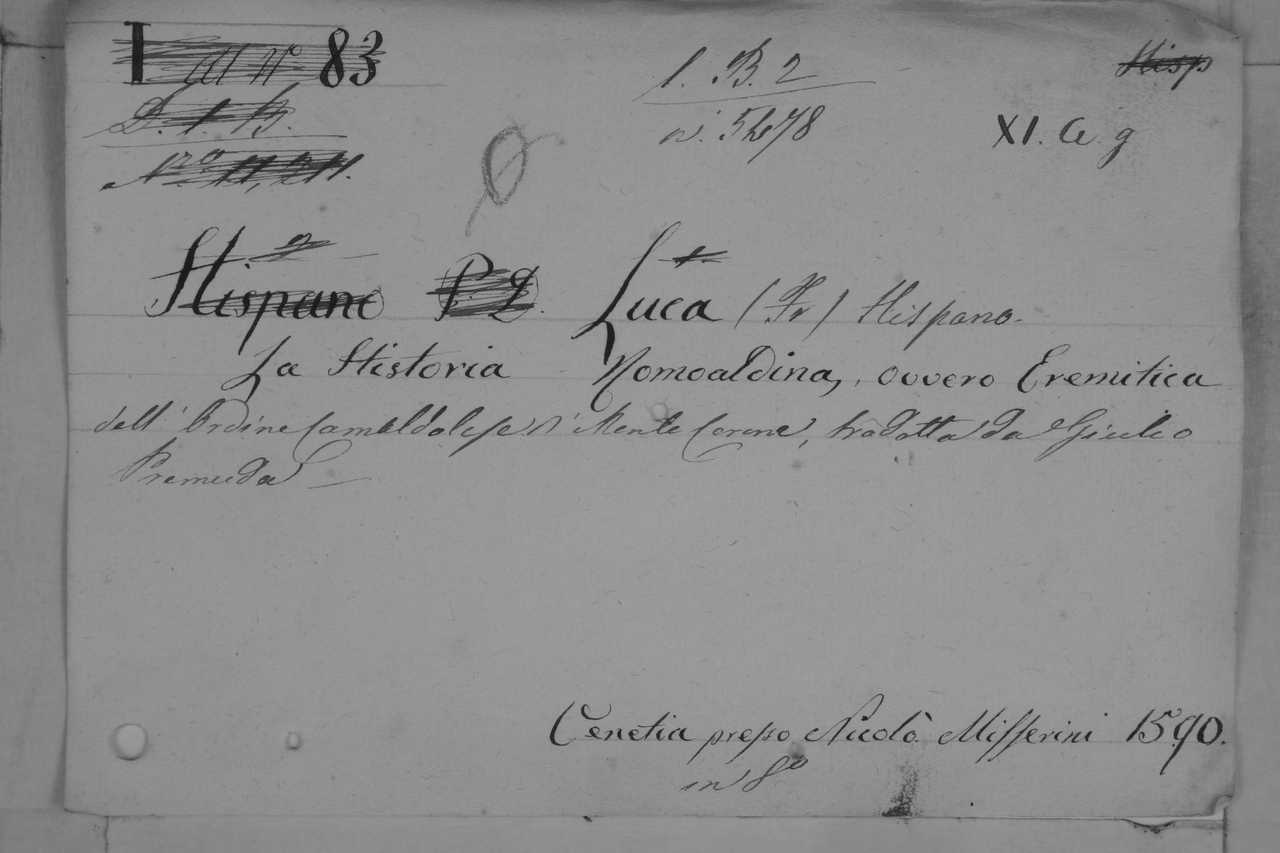 I al N° 83
1. B. 2
Hisp
D. 1. B.
n. 5478
XI. Ce. g
N.ro 11,211.
Hispano P. L. Luca (Fr) Hispano.
La Historia Romoaldina, ovvero Eremitica
dell' Ordine Camaldolese di Monte Corona, tradotta da Giulio
Premuda
Venetia presso Nicolò Misserini 1590.
in 8°